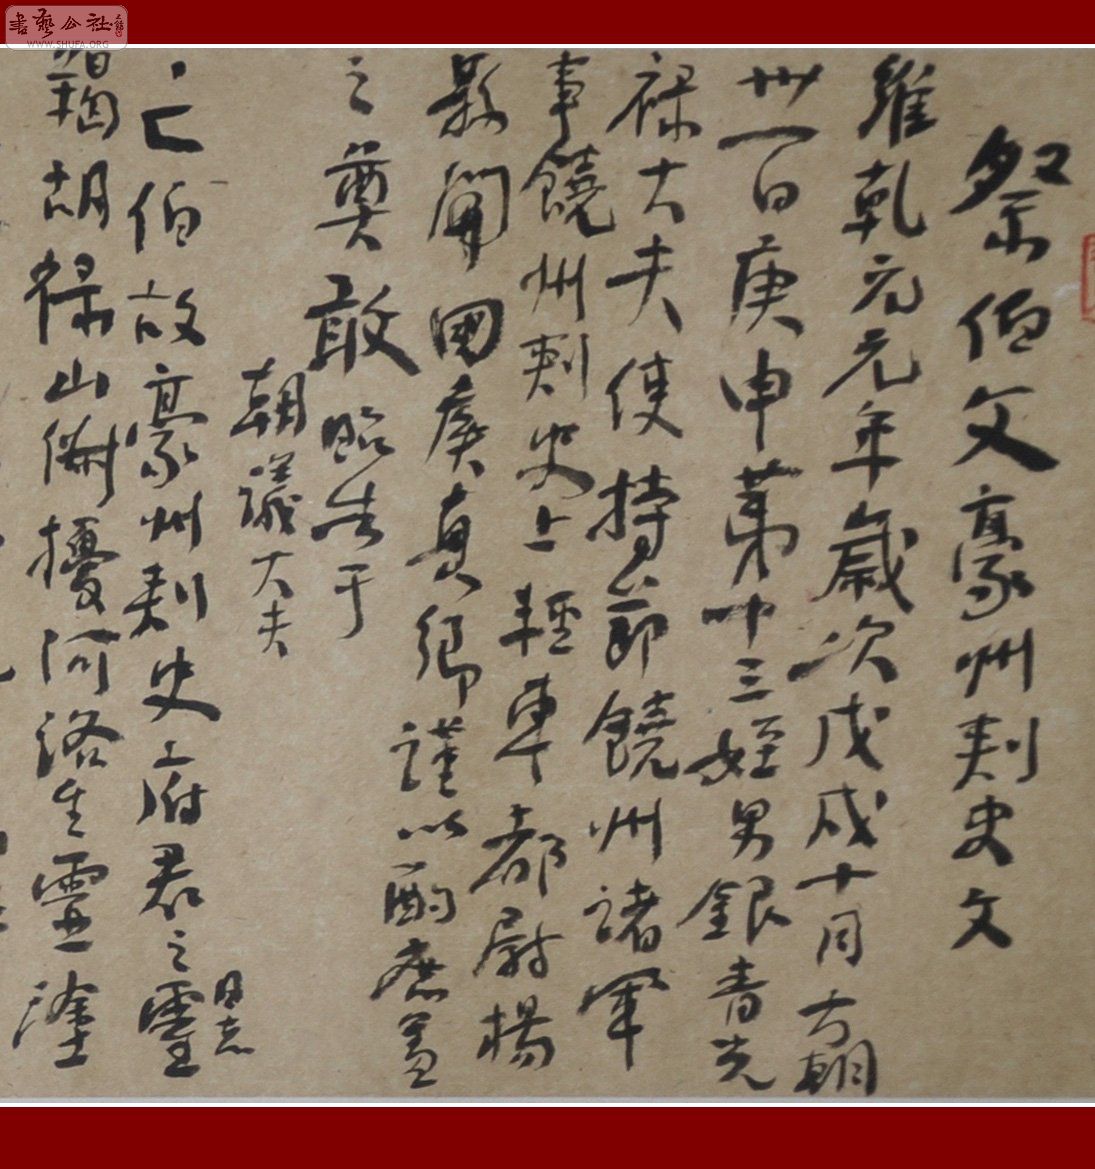 書藝公社
WWW.SHUFA.ORG
祭伯父豪州刺史文
維乾元元年歲次戊戌十月方朝
卅一日庚申第十三姪男銀青光
祿大夫使持節饒州諸軍
事饒州刺史上輕車都尉楊
縣開國侯真卿謹以酌庶羞
之奠敢昭告于
朝議大夫
亡伯故豪州刺史府君之靈
曰
羯胡祿山俶擾河洛生靈塗